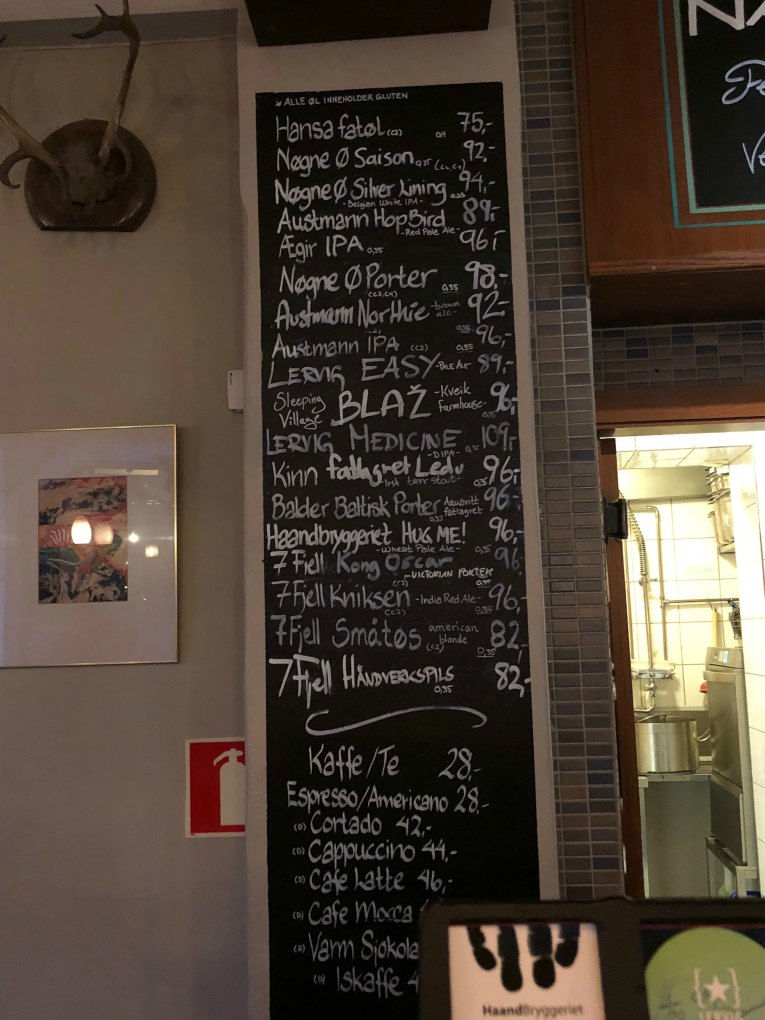 * ALLE ØL INNEHOLDER GLUTEN
Hansa fatøl (C2) 0,4 75,-
Nøgne Ø Saison 0,35 (C2,C4) 92,-
Nøgne Ø Silver Lining 0,35 94,-
-Belgian White IPA-
Austmann HopBird 89,-
-Red Pale Ale-
Ægir IPA 0,35 96,-
Nøgne Ø Porter 0,35 98,-
(C2,C4)
Austmann Northie -brown ale- 92,-
0,35
Austmann IPA (C2) 0,35 96,-
LERVIG EASY -PALE ALE- 89,-
Sleeping Village BLAŽ -Kveik farmhouse- 96,-
0,35
LERVIG MEDICINE 109,-
-DIPA-
Kinn fatlagret Ledu 96,-
Balder Baltisk Porter Aquavitt fatlagret 96,-
0,35
Haandbryggeriet HUG ME! 96,-
-Wheat Pale Ale- 0,35
7 Fjell Kong Oscar 96
-VICTORIAN PORTER
(C2) 0,35
7 Fjell Kniksen -India Red Ale- 96,-
(C2) 0,35
7 Fjell Småtøs american blonde 82,-
(C2) 0,35
7 Fjell HÅNDVERKSPILS 82,-
0,35
Kaffe/Te 28,-
Espresso/Americano 28,-
(D) Cortado 42,-
(D) Cappuccino 44,-
(D) Cafe Latte 46,-
(D) Cafe Mocca
(D) Varm Sjokola
(D) Iskaffe 4
HaandBryggeriet